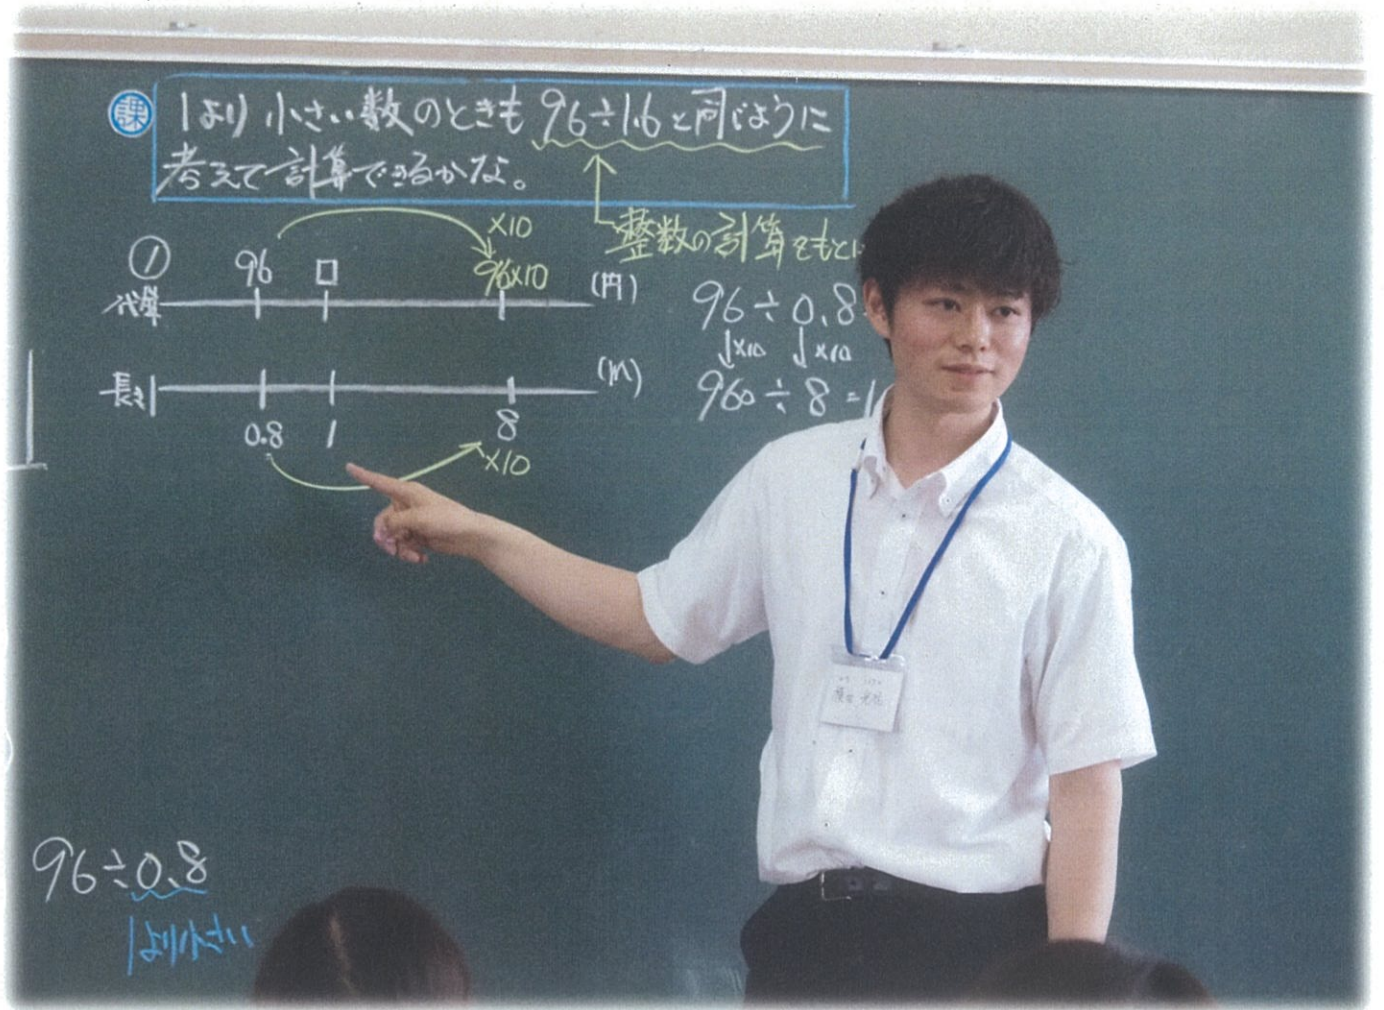 課
1より小さい数のときも96÷1.6と同じように
考えて計算できるかな。
整数の計算をもとに
×10
① 96 □ 96×10 (円)
代金
長さ (m)
0.8 1 8
×10
96÷0.8
×10 ×10
960÷8=1
96÷0.8
1より小さい